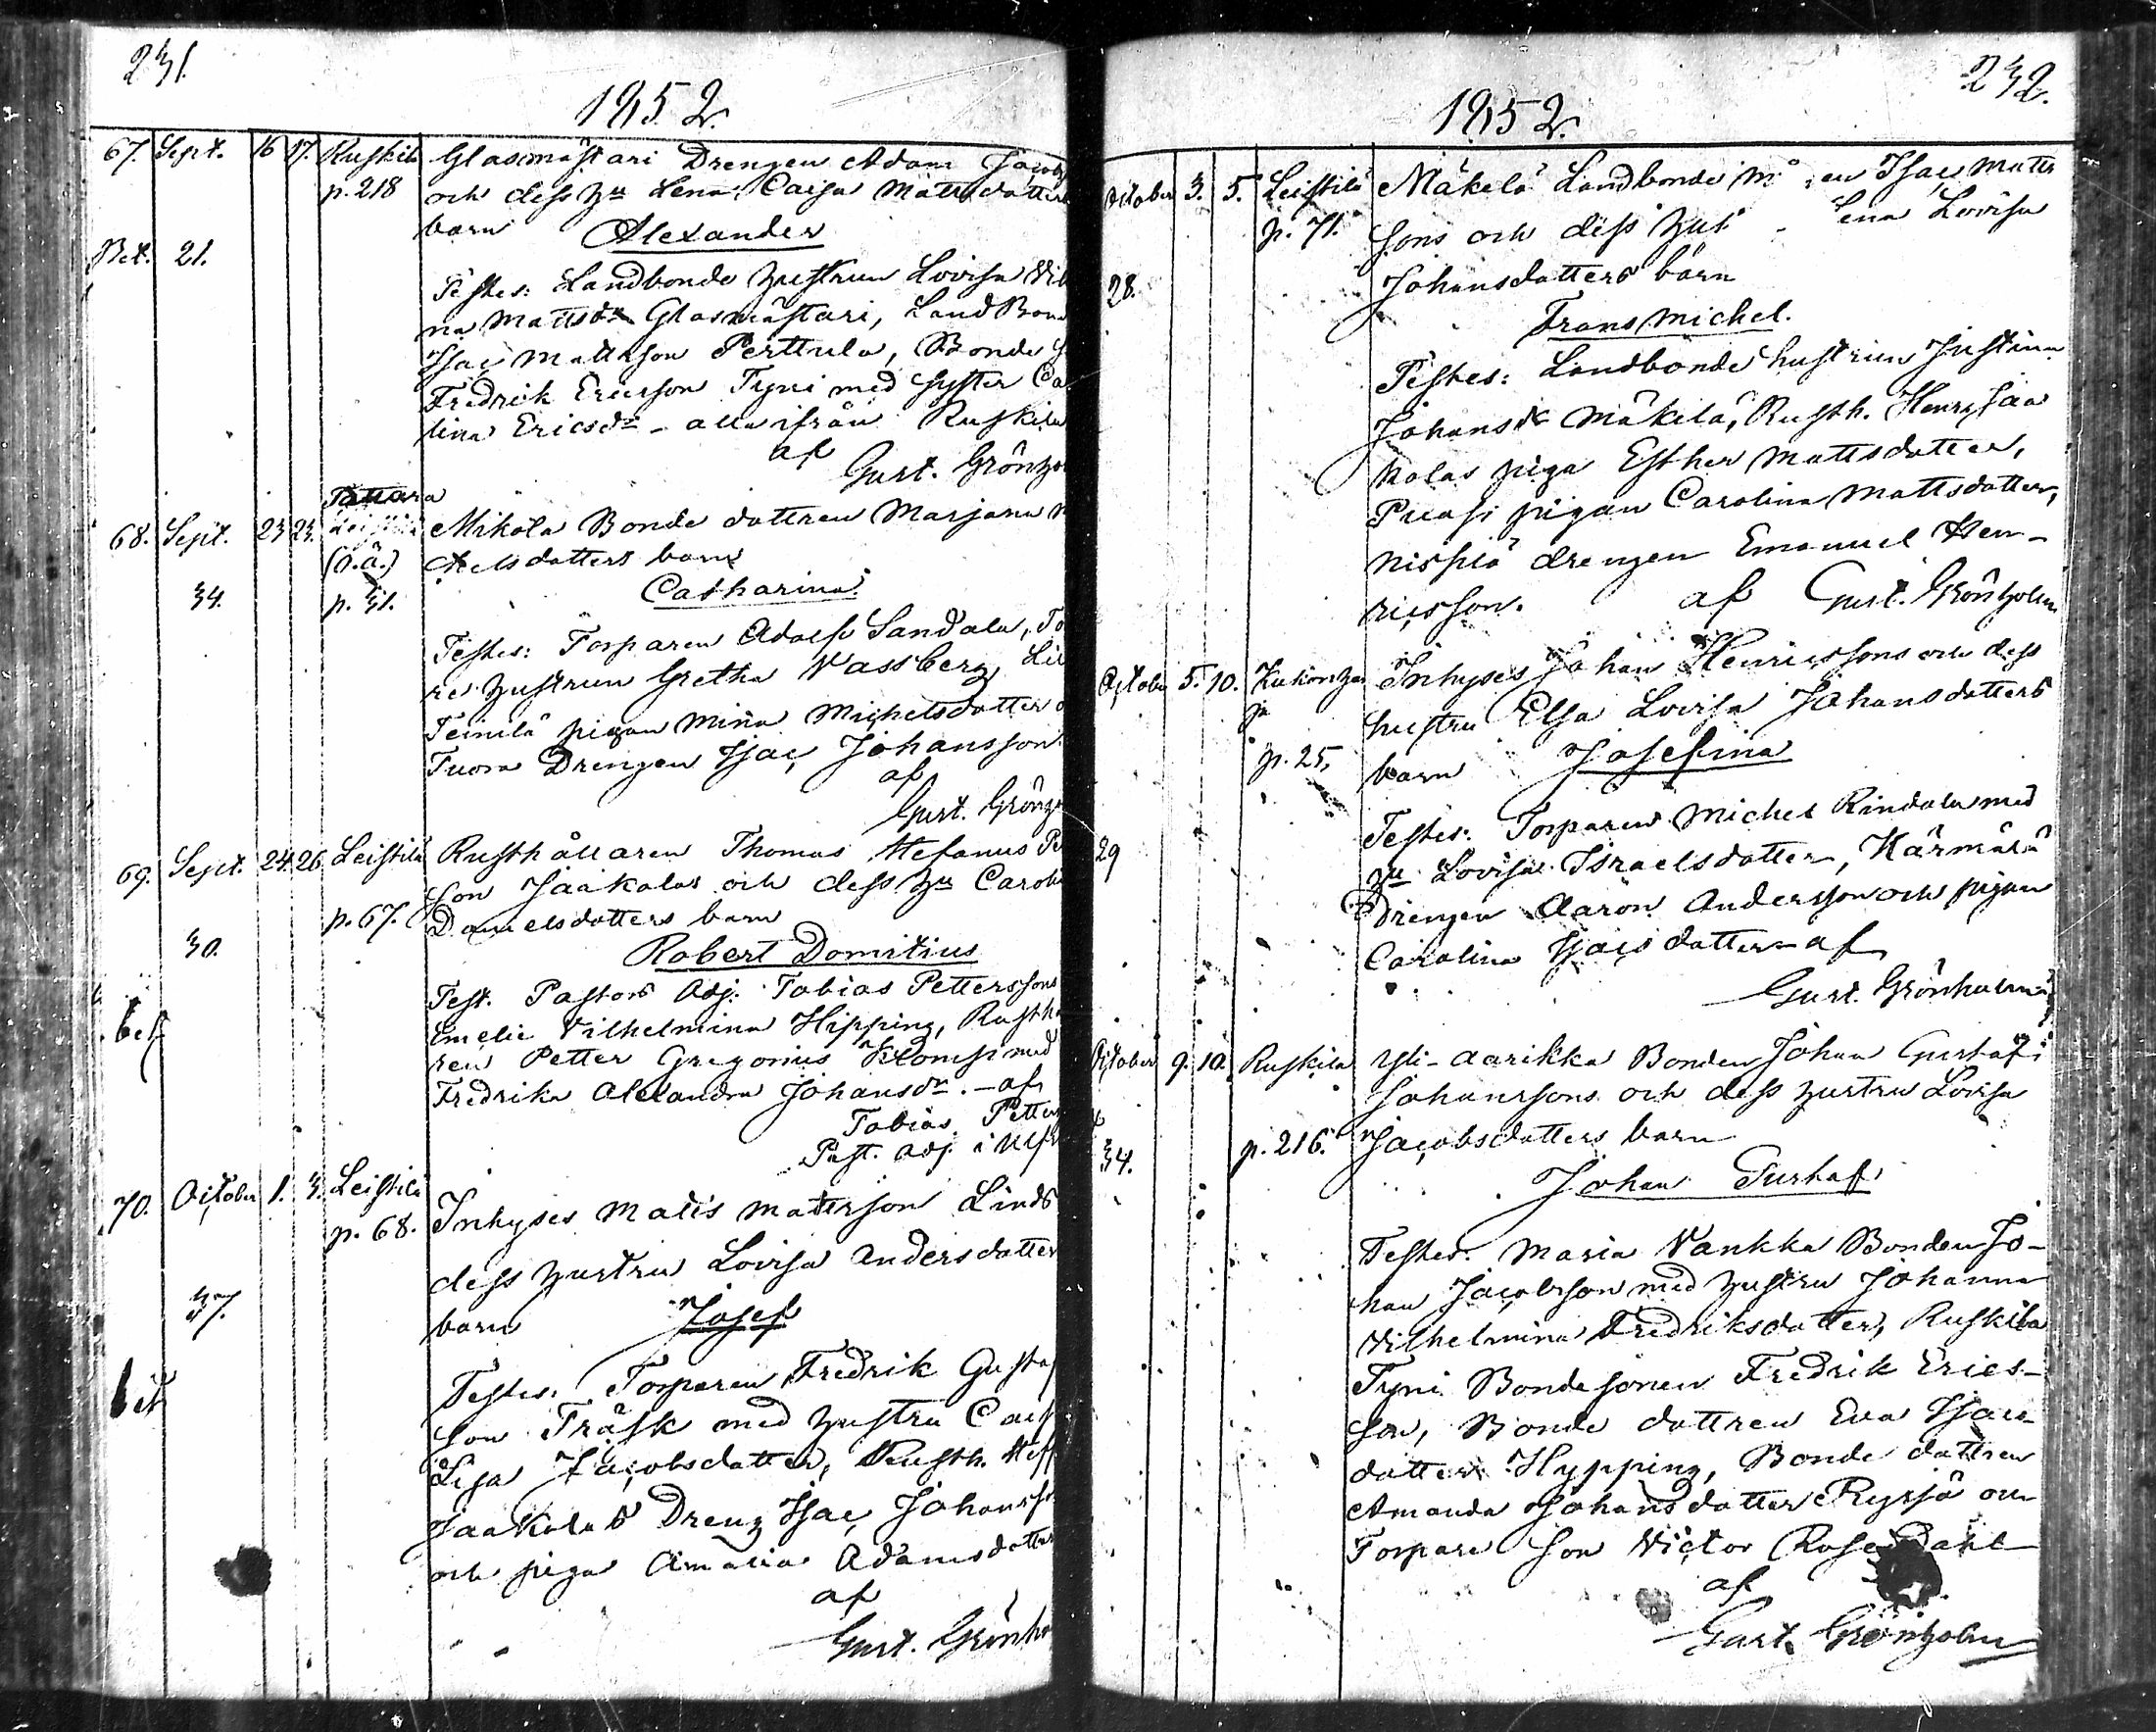 231.
1852.
67. Sept. 16 17. Ruskila Glasmästari Drengen Adam Jacobs
p. 218 och dess hu Lena Caisa Mattsdotters
barn Alexander
Bet. 21.
Testes: Landbonde hustrun Lovisa Vil
na Mattsdr Glasmästari, Land Bond
Isac Mattsson Perttula, Bonde
Fredrik Ericsson Tyni med syster Ca
lina Ericsdr - alla ifrån Ruskila
af
Gust. Grönho
Pattara
68. Sept. 23 25. Leistilä Mikola Bonde dottren Marjana
(o.ä.) Axelsdotters barn
34. p. 31. Catharina
Testes: Torparen Adolf Sandala, To
re hustrun Gretha Vassberg, Lil
Teinilä pigan Mina Michelsdotter
Tuora Drengen Isac Johansson
af
Gust. Grönh
69. Sept. 24 26 Leistilä Rusthållaren Thomas Stefanus Pe
son Jaakolas och dess hu Carol
p. 67. Danielsdotters barn
30. Robert Domitius
Test. Pastors Adj. Tobias Petterssons
bet Emelie Vilhelmina Hipping, Rusth
ren Petter Gregorius Klomsi med
Fredrika Alexandra Johansdr. - af
Tobias Petters
Past. adj. i Ulfs
70. October 1. 3. Leistilä Inhyses Matts Mattsson Linds
p. 68.
dess hustru Lovisa Andersdotter
37. barn Josef
bet Testes: Torparen Fredrik Gustaf
son Träsk med hustru Cais
Lisa Jacobsdotter, Rusth. Stef
Jaakolas Dreng Isac Johanss
och piga Amalia Adamsdotter
af
Gust. Grönho
232.
1852.
October 3. 5. Leistilä Mäkelä Landbonde en Isac Matts
p. 71. sons och dess hust Lena Lovisa
28. Johansdotters barn
Frans Michel.
Testes: Landbonde hustrun Justina
Johansdr Mäkilä, Rusth. Henr. Jaa
kolas piga Esther Mattsdotter,
Puasi pigan Carolina Mattsdotter,
Nispilä drengen Emanuel Hen-
ricsson. af Gust. Grönholm
October 5. 10. Kukonhar Inhyses Johan Henricssons och dess
ja hustru Elsa Lovisa Johansdotters
p. 25, barn Josefina
Testes: Torparen Michel Rindala med
29 hu Lovisa Israelsdotter, Kärmälä
Drengen Aaron Andersson och pigan
Carolina Isacsdotter - af
Gust. Grönholm
October 9. 10. Ruskila Yli-Aarikka Bonden Johan Gustaf
Johanssons och dess hustru Lovisa
34. p. 216. Jacobsdotters barn
Johan Gustaf
Testes: Maria Vankka Bonden Jo-
han Jacobsson med hustru Johanna
Vilhelmina Fredriksdotter, Ruskila
Tyni Bondesonen Fredrik Erics-
son, Bonde dottren Eva Isacs-
dotter Hypping, Bonde dottren
Amanda Johansdotter Rysjö och
Torpare son Victor Rosendahl
af
Gust. Grönholm